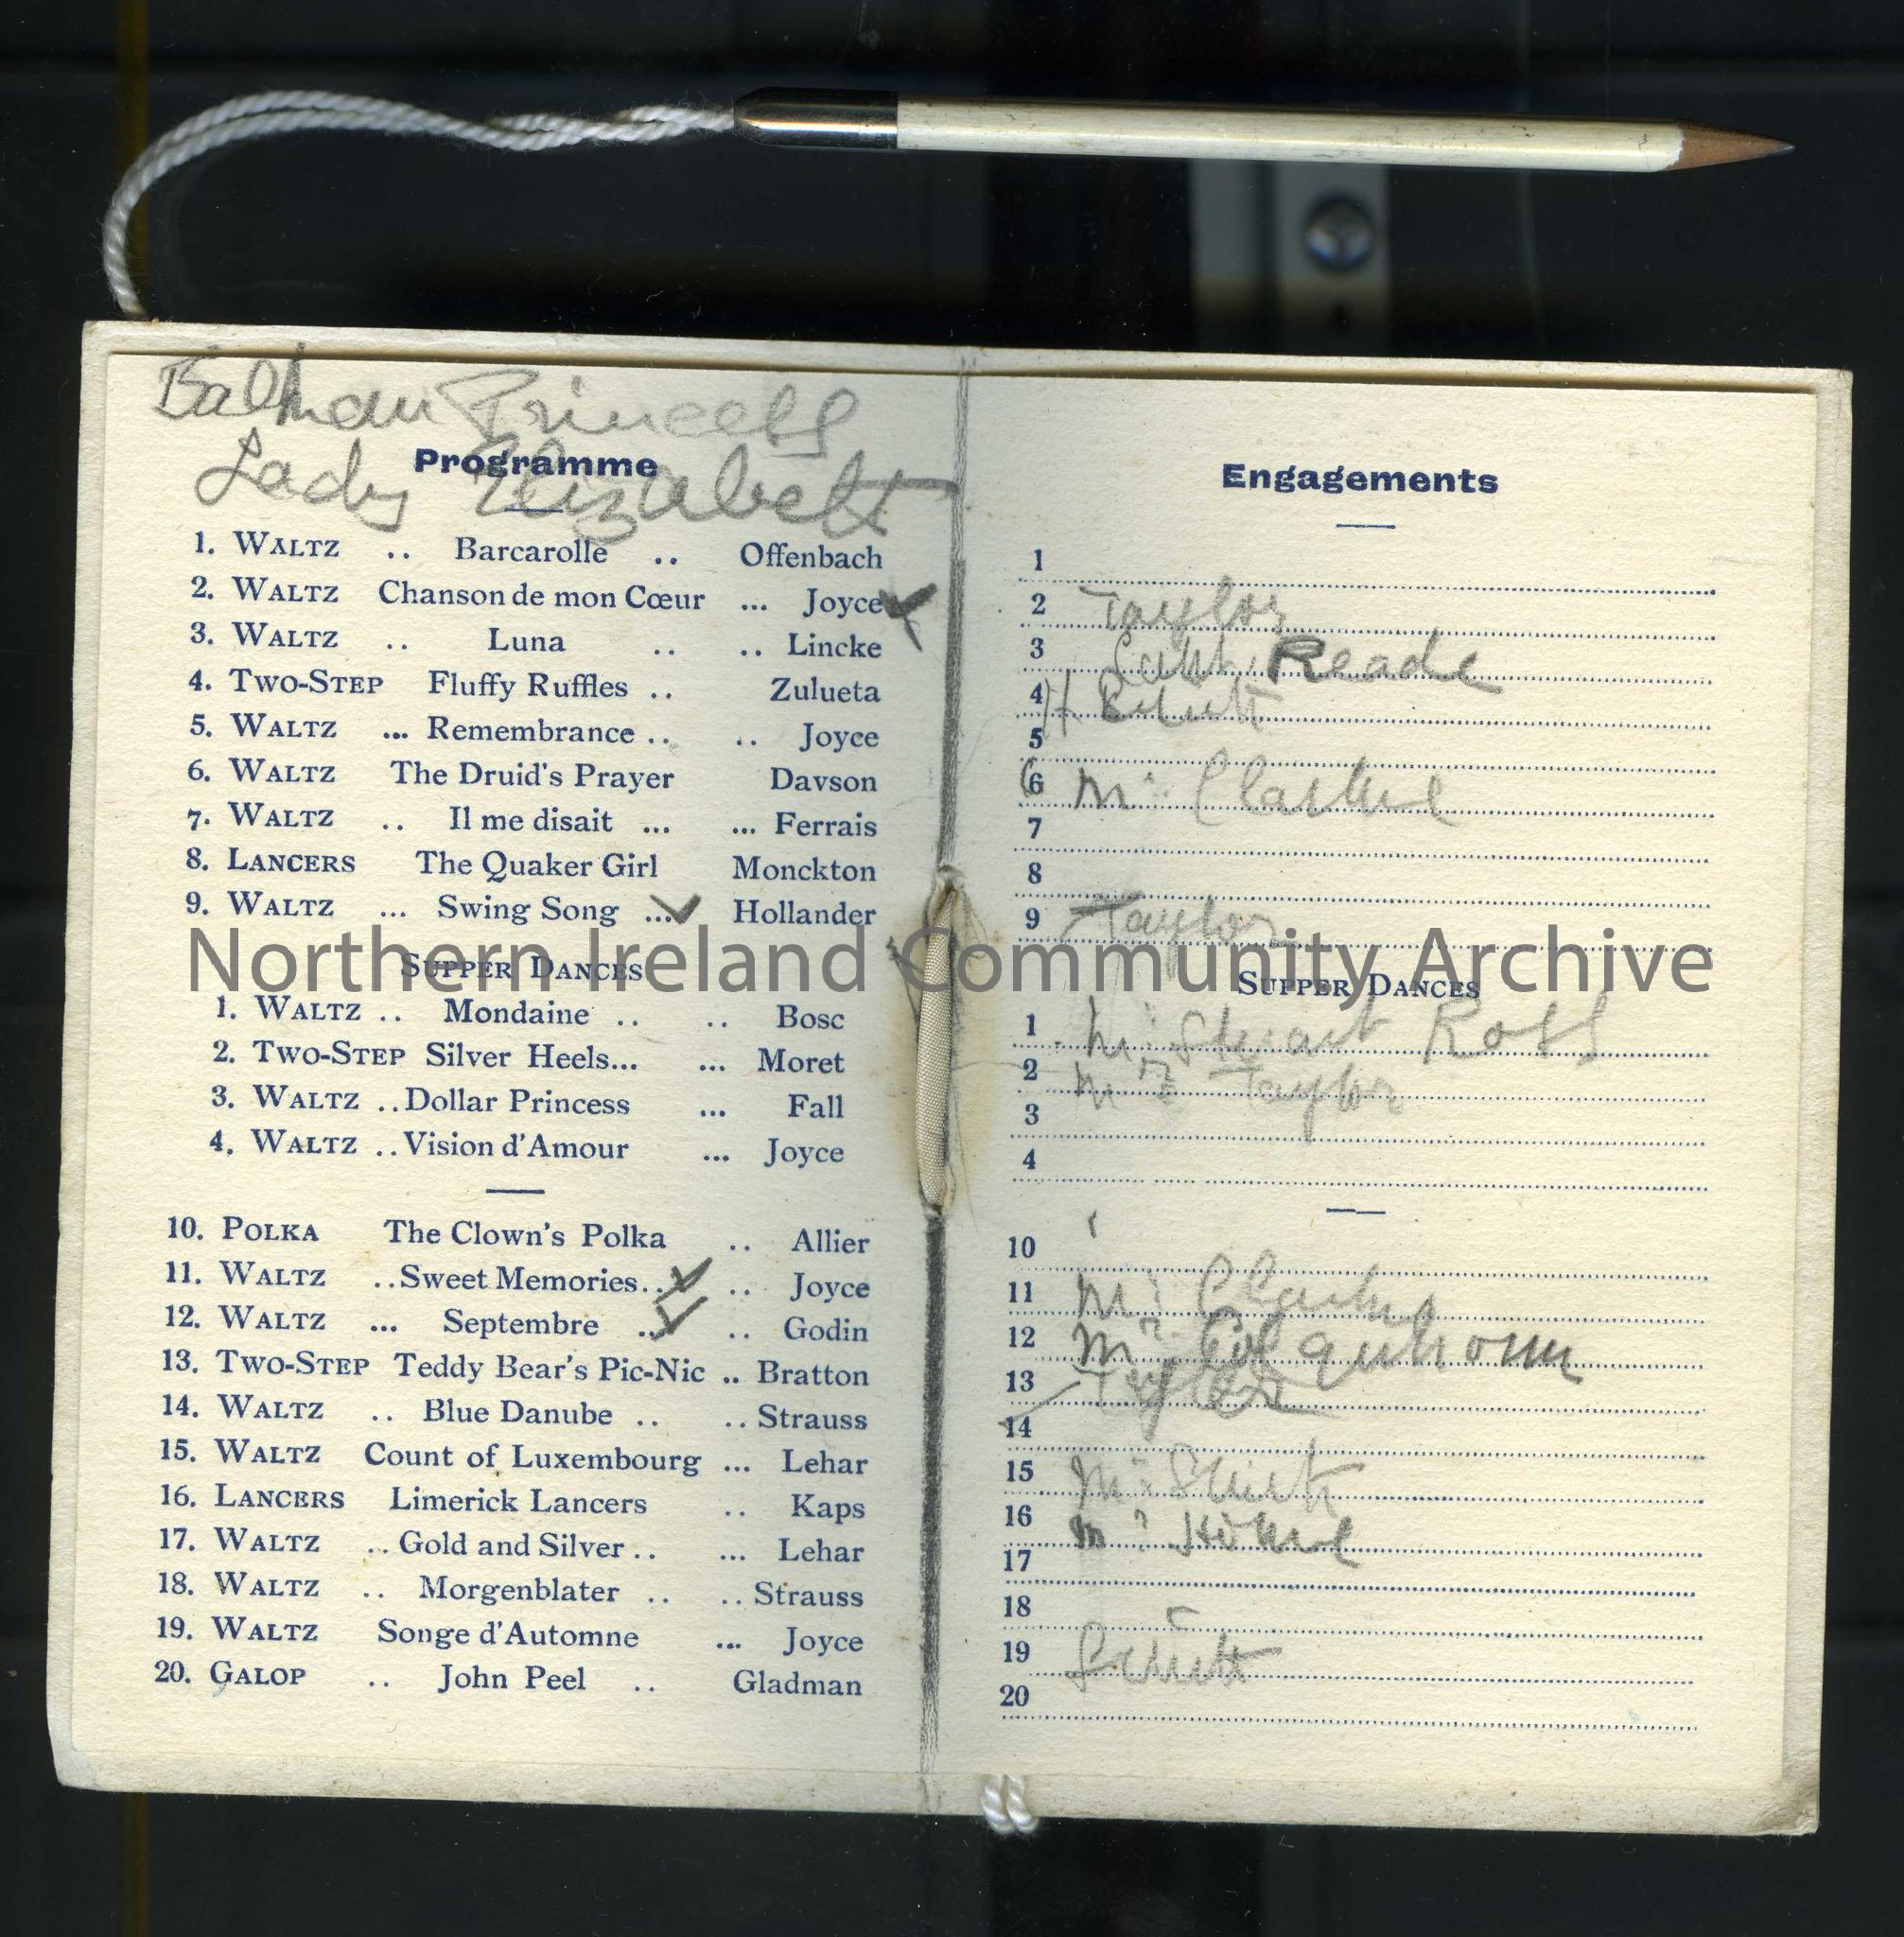 Balkan Princess
Lady Elizabeth
Programme
1. WALTZ .. Barcarolle .. Offenbach
2. WALTZ Chanson de mon Cœur ... Joyce
3. WALTZ .. Luna .. .. Lincke
4. TWO-STEP Fluffy Ruffles .. Zulueta
5. WALTZ ... Remembrance .. .. Joyce
6. WALTZ The Druid's Prayer Davson
7. WALTZ .. Il me disait ... ... Ferrais
8. LANCERS The Quaker Girl Monckton
9. WALTZ ... Swing Song ... Hollander
SUPPER DANCES
1. WALTZ .. Mondaine .. .. Bosc
2. TWO-STEP Silver Heels... ... Moret
3. WALTZ ..Dollar Princess ... Fall
4. WALTZ ..Vision d'Amour ... Joyce
10. POLKA The Clown's Polka .. Allier
11. WALTZ ..Sweet Memories.. .. Joyce
12. WALTZ ... Septembre .. .. Godin
13. TWO-STEP Teddy Bear's Pic-Nic .. Bratton
14. WALTZ .. Blue Danube .. .. Strauss
15. WALTZ Count of Luxembourg ... Lehar
16. LANCERS Limerick Lancers .. Kaps
17. WALTZ .. Gold and Silver .. ... Lehar
18. WALTZ .. Morgenblater .. .. Strauss
19. WALTZ Songe d'Automne ... Joyce
20. GALOP .. John Peel .. Gladman
Engagements
1
2 Taylor
3 Capt. Reade
4
5
6 Mr Clarke
7
8
9 Taylor
SUPPER DANCES
1 Mr Stuart Ross
2 Mr Taylor
3
4
10
11 Mr Clarke
12 Mr Colquhoun
13 Taylor
14
15 Mr
16 Mr
17
18
19
20
Northern Ireland Community Archive